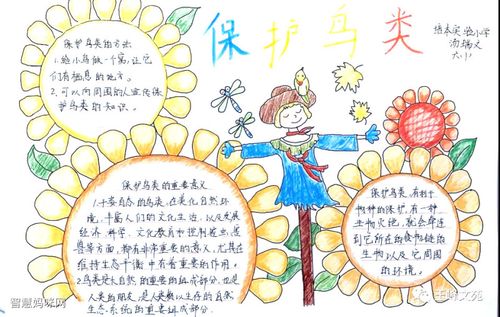 保护鸟类
培本实验小学
汤瑞文
大小
保护鸟类的方法
1.给小鸟做一个窝,让它
们有栖息的地方。
2.可以向周围的人宣传保
护鸟类的知识。
保护鸟类的重要意义
1.千姿百态的鸟类,在美化自然环
境,丰富人们的文化生活,以及发展
经济、科学、文化教育和控制害虫、
兽等方面,都有非常重要的意义,尤其在
维持生态平衡中有着重要的作用。
2.鸟类是大自然的重要组成部分,也是
人类的朋友,是人类赖以生存的自然
生态系统的重要组成部分。
保护鸟类,有利于
物种的保护,有一种
生物灭绝,就会牵连
到它所在的食物链的
生物以及它周围
的环境。
智慧妈咪网
主峰文苑